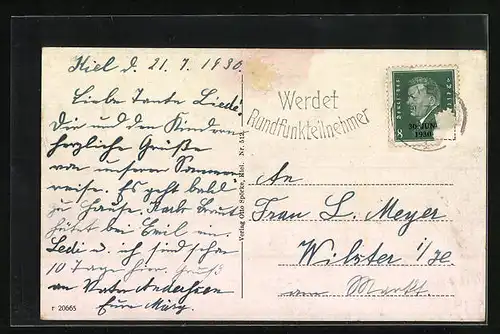 Kiel d. 21.7.1930.
Liebe Tante Liede!
Dir und den Kindern
herzliche Grüße
von unserer Sommer
reise. Es geht bald
zu Hause. Karls Braut
hütet bei Emil ein.
Ledi u. ich sind schon
10 Tage hier. Gruß
an Vater Andersen
Eure Marg
r 20665
Verlag Otto Spörke, Kiel. Nr. 512
Werdet
Rundfunkteilnehmer
Deutsches Reich
8
30. JUNI
1930
An
Frau L. Meyer
Wilster i/H.
am Markt.